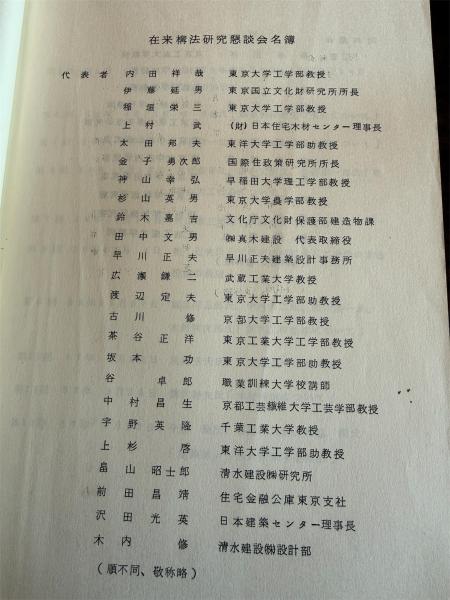 在来構法研究懇談会名簿
代表者 内田祥哉 東京大学工学部教授
伊藤延男 東京国立文化財研究所所長
稲垣栄三 東京大学工学部教授
上村武 (財)日本住宅木材センター理事長
太田邦夫 東洋大学工学部助教授
金子勇次郎 国際住政策研究所所長
神山幸弘 早稲田大学理工学部教授
杉山英男 東京大学農学部教授
鈴木嘉吉 文化庁文化財保護部建造物課
田中文男 ㈱真木建設 代表取締役
早川正夫 早川正夫建築設計事務所
広瀬鎌二 武蔵工業大学教授
渡辺定夫 東京大学工学部助教授
古川修 京都大学工学部教授
茶谷正洋 東京工業大学工学部教授
坂本功 東京大学工学部助教授
谷卓郎 職業訓練大学校講師
中村昌生 京都工芸繊維大学工芸学部教授
宇野英隆 千葉工業大学教授
上杉啓 東洋大学工学部助教授
畠山昭士郎 清水建設㈱研究所
前田昌靖 住宅金融公庫東京支社
沢田光英 日本建築センター理事長
木内修 清水建設㈱設計部
(順不同、敬称略)